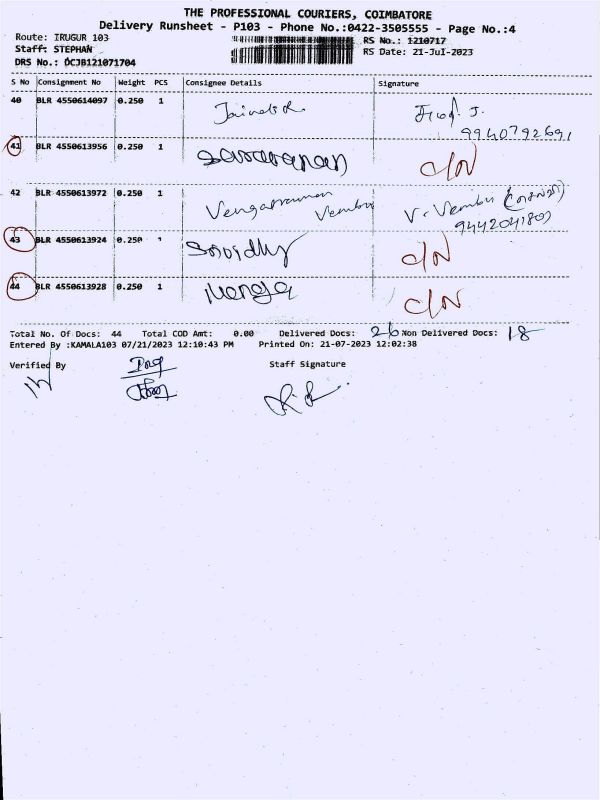 THE PROFESSIONAL COURIERS, COIMBATORE
Delivery Runsheet - P103 - Phone No.:0422-3505555 - Page No.:4
Route: IRUGUR 103
RS No.: 1210717
Staff: STEPHAN
RS Date: 21-Jul-2023
DRS No.: DCJB121071704
S No Consignment No Weight PCS Consignee Details Signature
40 BLR 4550614097 0.250 1
9940792691
41 BLR 4550613956 0.250 1 Saravanan C/N
42 BLR 4550613972 0.250 1 Vengatraman Vembu V. Vembu
9442041803
43 BLR 4550613924 0.250 1 C/N
44 BLR 4550613928 0.250 1 C/N
Total No. Of Docs: 44 Total COD Amt: 0.00 Delivered Docs: 26 Non Delivered Docs: 18
Entered By :KAMALA103 07/21/2023 12:10:43 PM Printed On: 21-07-2023 12:02:38
Verified By Staff Signature